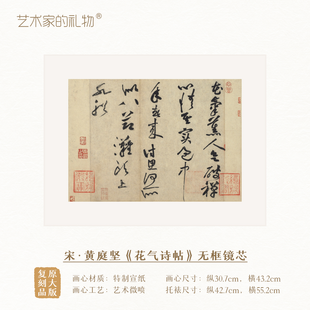 艺术家的礼物®
花氣薰人欲破禪
心情其實過中
年春來詩思何所
似八節灘頭上
水船
宋·黄庭坚《花气诗帖》无框镜芯
原大版
复刻品
画心材质：特制宣纸
画心尺寸：纵30.7cm，横43.2cm
画心工艺：艺术微喷
托裱尺寸：纵42.7cm，横55.2cm